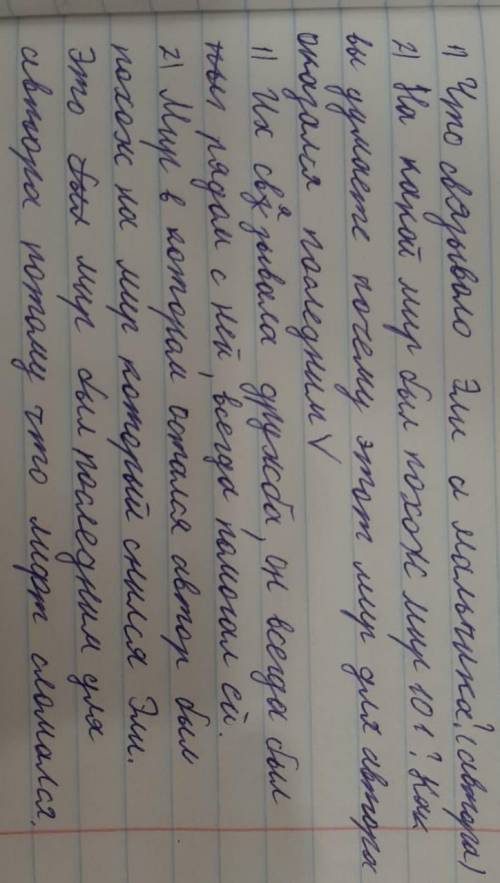 1) Что связывало Эли и мальчика? (автора)
2) На какой мир был похож мир 101? Как
вы думаете почему этот мир для автора
оказался последним
1) Их связывала дружба, он всегда был
рядом с ней, всегда помогал ей.
2) Мир в котором остался автор был
похож на мир который снился Эли.
Это был мир был последним для
автора потому что лифт сломался.